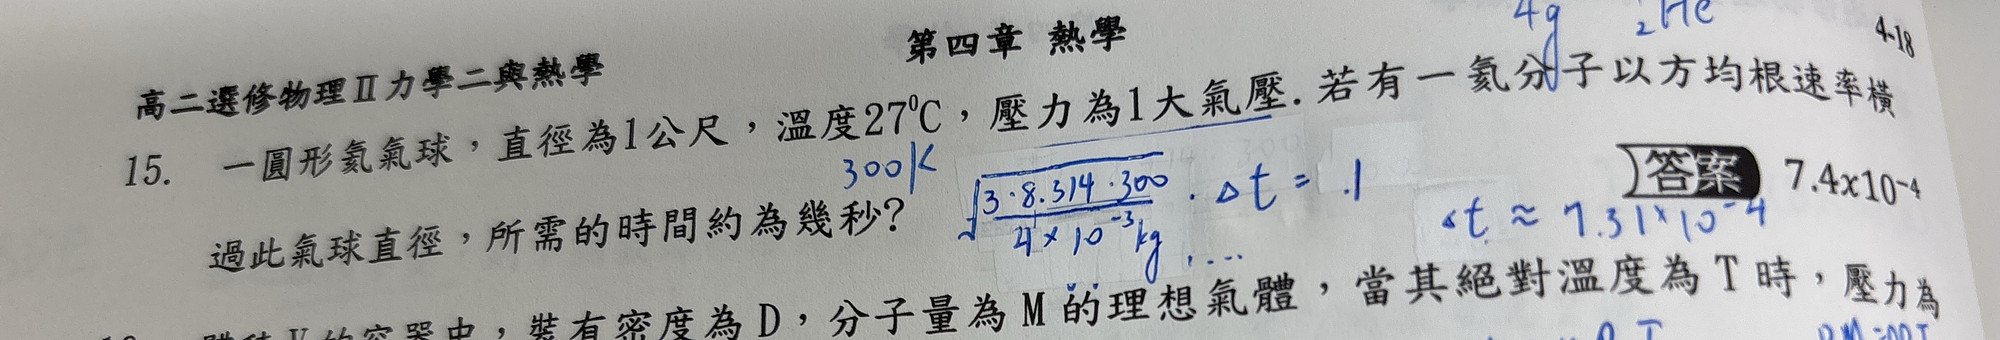 4g ₂He
第四章 熱學
4-18
高二選修物理Ⅱ力學二與熱學
15. 一圓形氦氣球，直徑為1公尺，溫度27⁰C，壓力為1大氣壓.若有一氦分子以方均根速率橫
300K
過此氣球直徑，所需的時間約為幾秒？
√(3·8.314·300 / 4×10⁻³kg) · Δt = .1
答案 7.4x10⁻⁴
Δt ≈ 7.31×10⁻⁴
的容器中，裝有密度為 D，分子量為 M 的理想氣體，當其絕對溫度為 T 時，壓力為